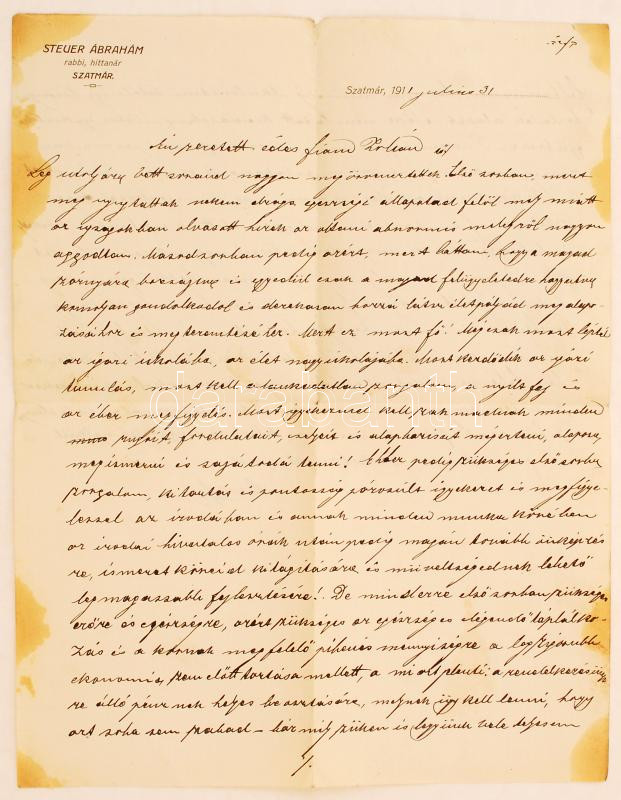 STEUER ÁBRAHÁM
rabbi, hittanár
SZATMÁR.
Szatmár, 1911 julius 31
Én szeretett édes fiam Zoltán
Leg utoljára vett soraid nagyon megörvendeztettek. Első sorban, mert
meg nyugtattak nekem drága egészségi állapotod felől mely miatt
az ujságokban olvasott hirek az ottani abnormis melegről nagyon
aggodtam. Másodsorban pedig azért, mert láttam, hogy a magad
szárnyára bocsájtva és egyedül csak a magad felügyeletedre hagyatva
komolyan gondolkodol és derekasan hozzá látsz életpályád megalapo-
zásához és megteremtéséhez. Mert ez most fő! Még csak most léptél
az igazi iskolába, az élet nagy iskolájába. Most kezdődik az igazi
tanulás, most kell a lankadatlan szorgalom, a nyilt fej és
az éber megfigyelés. Most igyekezned kell szakmádnak minden
csinját, fordulatait, és megérteni, alaposan
megismerni és sajátoddá tenni! Ehhez pedig szükséges első sorban
szorgalom, kitartás és pontosság párosult igyekezet és megfigye-
léssel az irodában és annak minden munka körében
az irodai hivatalos órák után pedig magán tovább önképzés
re, ismeret köreid kitágitására és műveltségednek lehető
legmagasabb fejlesztésére! De mind erre első sorban szükséges
erőre és egészségre, azért szükséges az egészséges elegendő táplálko-
zás és a kornak megfelelő pihenés mennyiségre a legszigorubb
ekonomia szem előtt tartása mellett, a miolt jelenti: a rendelkezésünk
re álló pénznek helyes beosztására, melynek ugy kell lenni, hogy
azt soha sem szabad – bár mily szüken is legyünk vele teljesen
darabanth